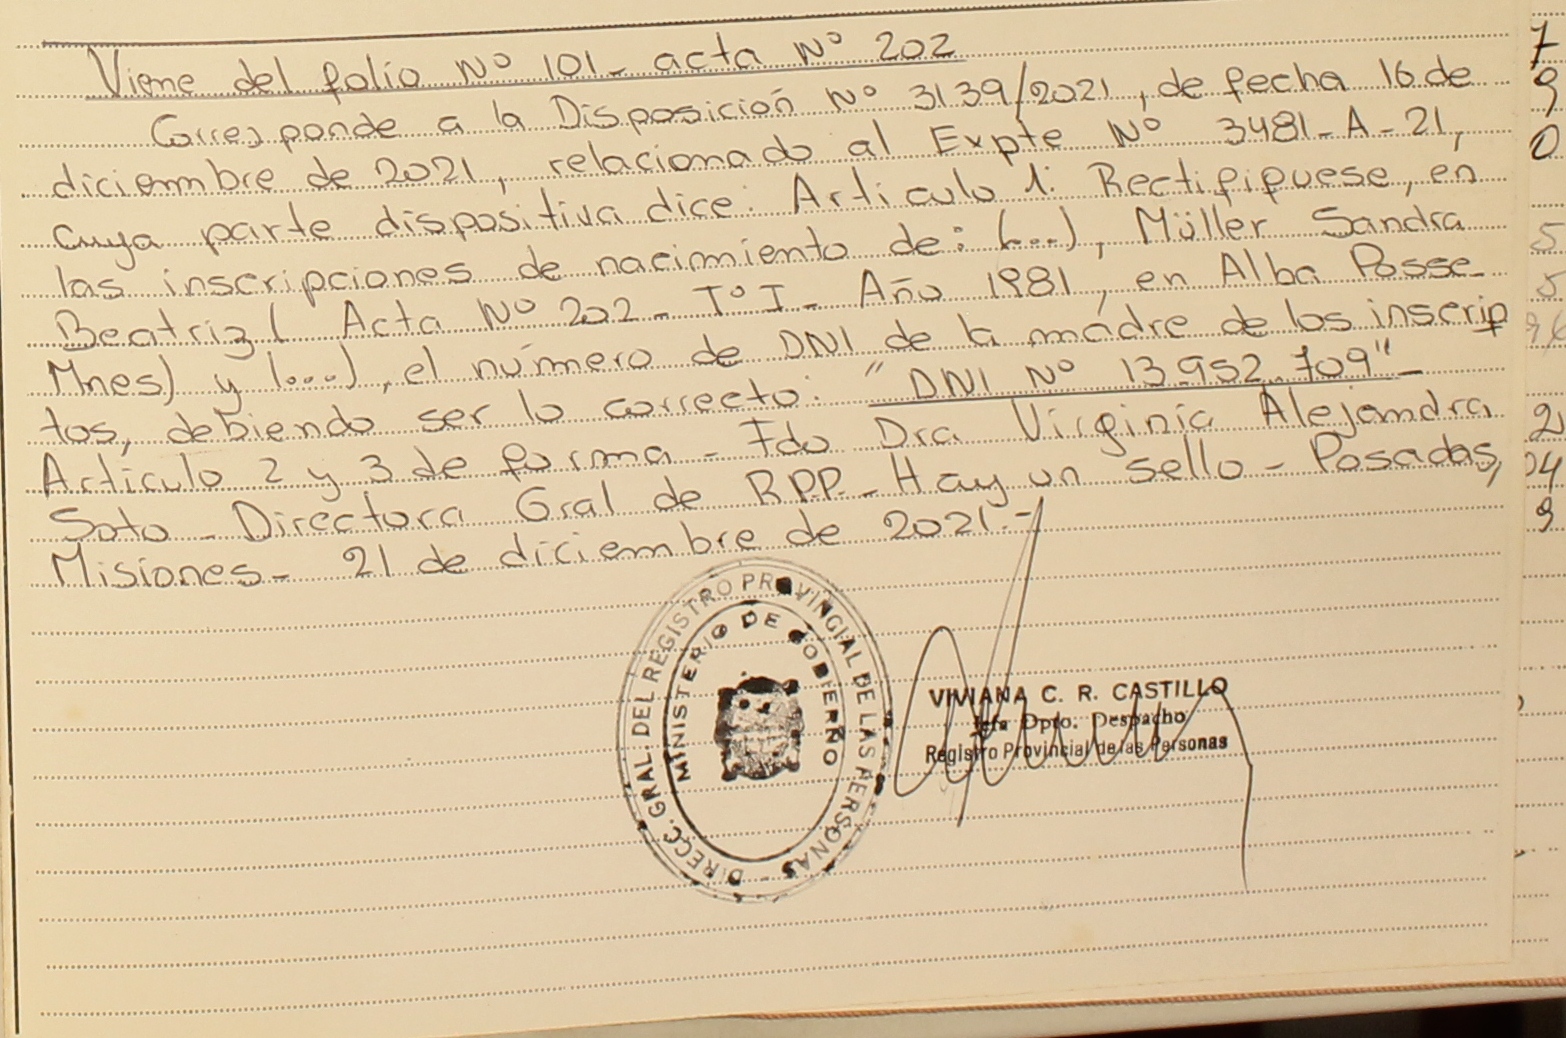 Viene del folio Nº 101 - acta Nº 202
Corresponde a la Disposición Nº 3139/2021, de fecha 16 de
diciembre de 2021, relacionado al Expte Nº 3481-A-21,
cuya parte dispositiva dice: Articulo 1: Rectifíquese, en
las inscripciones de nacimiento de: (...), Müller Sandra
Beatriz ( Acta Nº 202 - Tº I - Año 1981, en Alba Posse
Mnes) y (...), el número de DNI de la madre de los inscrip
tos, debiendo ser lo correcto: "DNI Nº 13.952.709" -
Artículo 2 y 3 de forma - Fdo Dra Virginia Alejandra
Soto - Directora Gral de RPP - Hay un sello - Posadas,
Misiones - 21 de diciembre de 2021.-
DIRECC. GRAL. DEL REGISTRO PROVINCIAL DE LAS PERSONAS -
MINISTERIO DE GOBIERNO
VIVIANA C. R. CASTILLO
Jefa Dpto. Despacho
Registro Provincial de las Personas
7
9
0
5
5
2
04
9